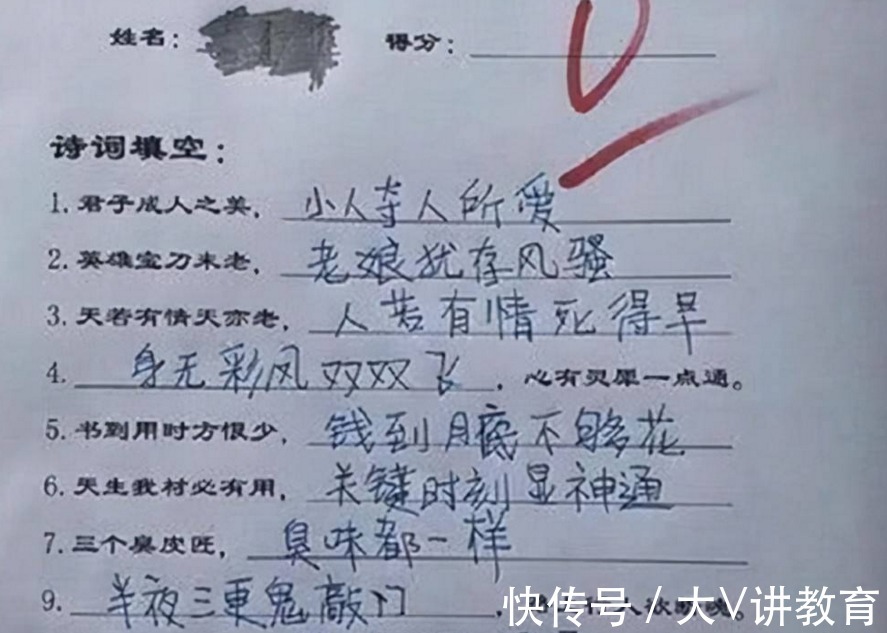 姓名： 得分： 0
诗词填空：
1. 君子成人之美，小人夺人所爱
2. 英雄宝刀未老，老娘犹存风骚
3. 天若有情天亦老，人若有情死得早
4. 身无彩风双双飞，心有灵犀一点通。
5. 书到用时方恨少，钱到月底不够花
6. 天生我材必有用，关键时刻显神通
7. 三个臭皮匠，臭味都一样
9. 半夜三更鬼敲门，
快传号 / 大V讲教育